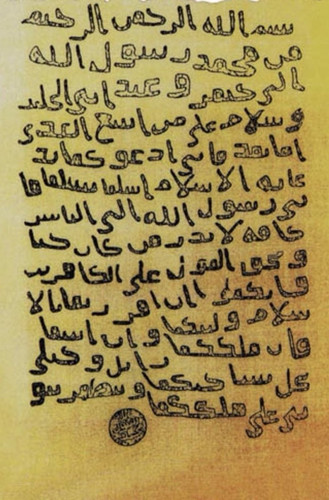 بسم الله الرحمن الرحيم
من محمد رسول الله
الى جيفر و عبد ابني الجلند
وسلام على من اتبع الهدى
اما بعد فاني ادعوكما بد
عاية الاسلام اسلما تسلما فا
ني رسول الله الى الناس
كافه لانذر من كان حيا
و يحق القول على الكافرين
فانكما ان اقررتما بالا
سلام وليتكما و ان ابيتما
فان ملككما زايل و خيلي
تحل بساحتكما و تظهر نبو
تي على ملككما